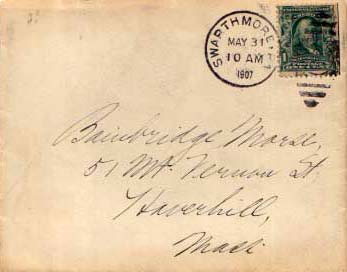 SWARTHMORE, PA
MAY 31
10 AM
1907
Bainbridge Morse,
51 Mt. Vernon St.
Haverhill,
Mass.